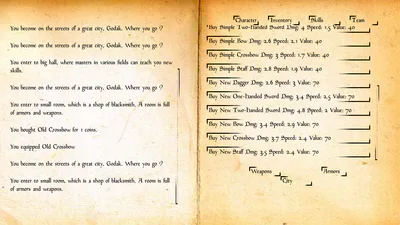 You become on the streets of a great city, Godak. Where you go ?
You become on the streets of a great city, Godak. Where you go ?
You enter to big hall, where masters in various fields can teach you new
skills.
You become on the streets of a great city, Godak. Where you go ?
You enter to small room, which is a shop of blacksmith. A room is full
of armors and weapons.
You bought Old Crossbow for 1 coins.
You equipped Old Crossbow
You become on the streets of a great city, Godak. Where you go ?
You enter to small room, which is a shop of blacksmith. A room is full
of armors and weapons.
Character Inventory Skills Team
Buy Simple Two-Handed Sword Dmg: 4 Speed: 1.5 Value: 40
Buy Simple Bow Dmg: 2.6 Speed: 2.1 Value: 40
Buy Simple Crossbow Dmg: 3 Speed: 1.7 Value: 40
Buy Simple Staff Dmg: 2.8 Speed: 1.9 Value: 40
Buy New Dagger Dmg: 2.6 Speed: 3 Value: 70
Buy New One-Handed Sword Dmg: 3.4 Speed: 2.5 Value: 70
Buy New Two-Handed Sword Dmg: 4.8 Speed: 2 Value: 70
Buy New Bow Dmg: 3.4 Speed: 2.9 Value: 70
Buy New Crossbow Dmg: 3.7 Speed: 2.4 Value: 70
Buy New Staff Dmg: 3.5 Speed: 2.4 Value: 70
Weapons Armors
City